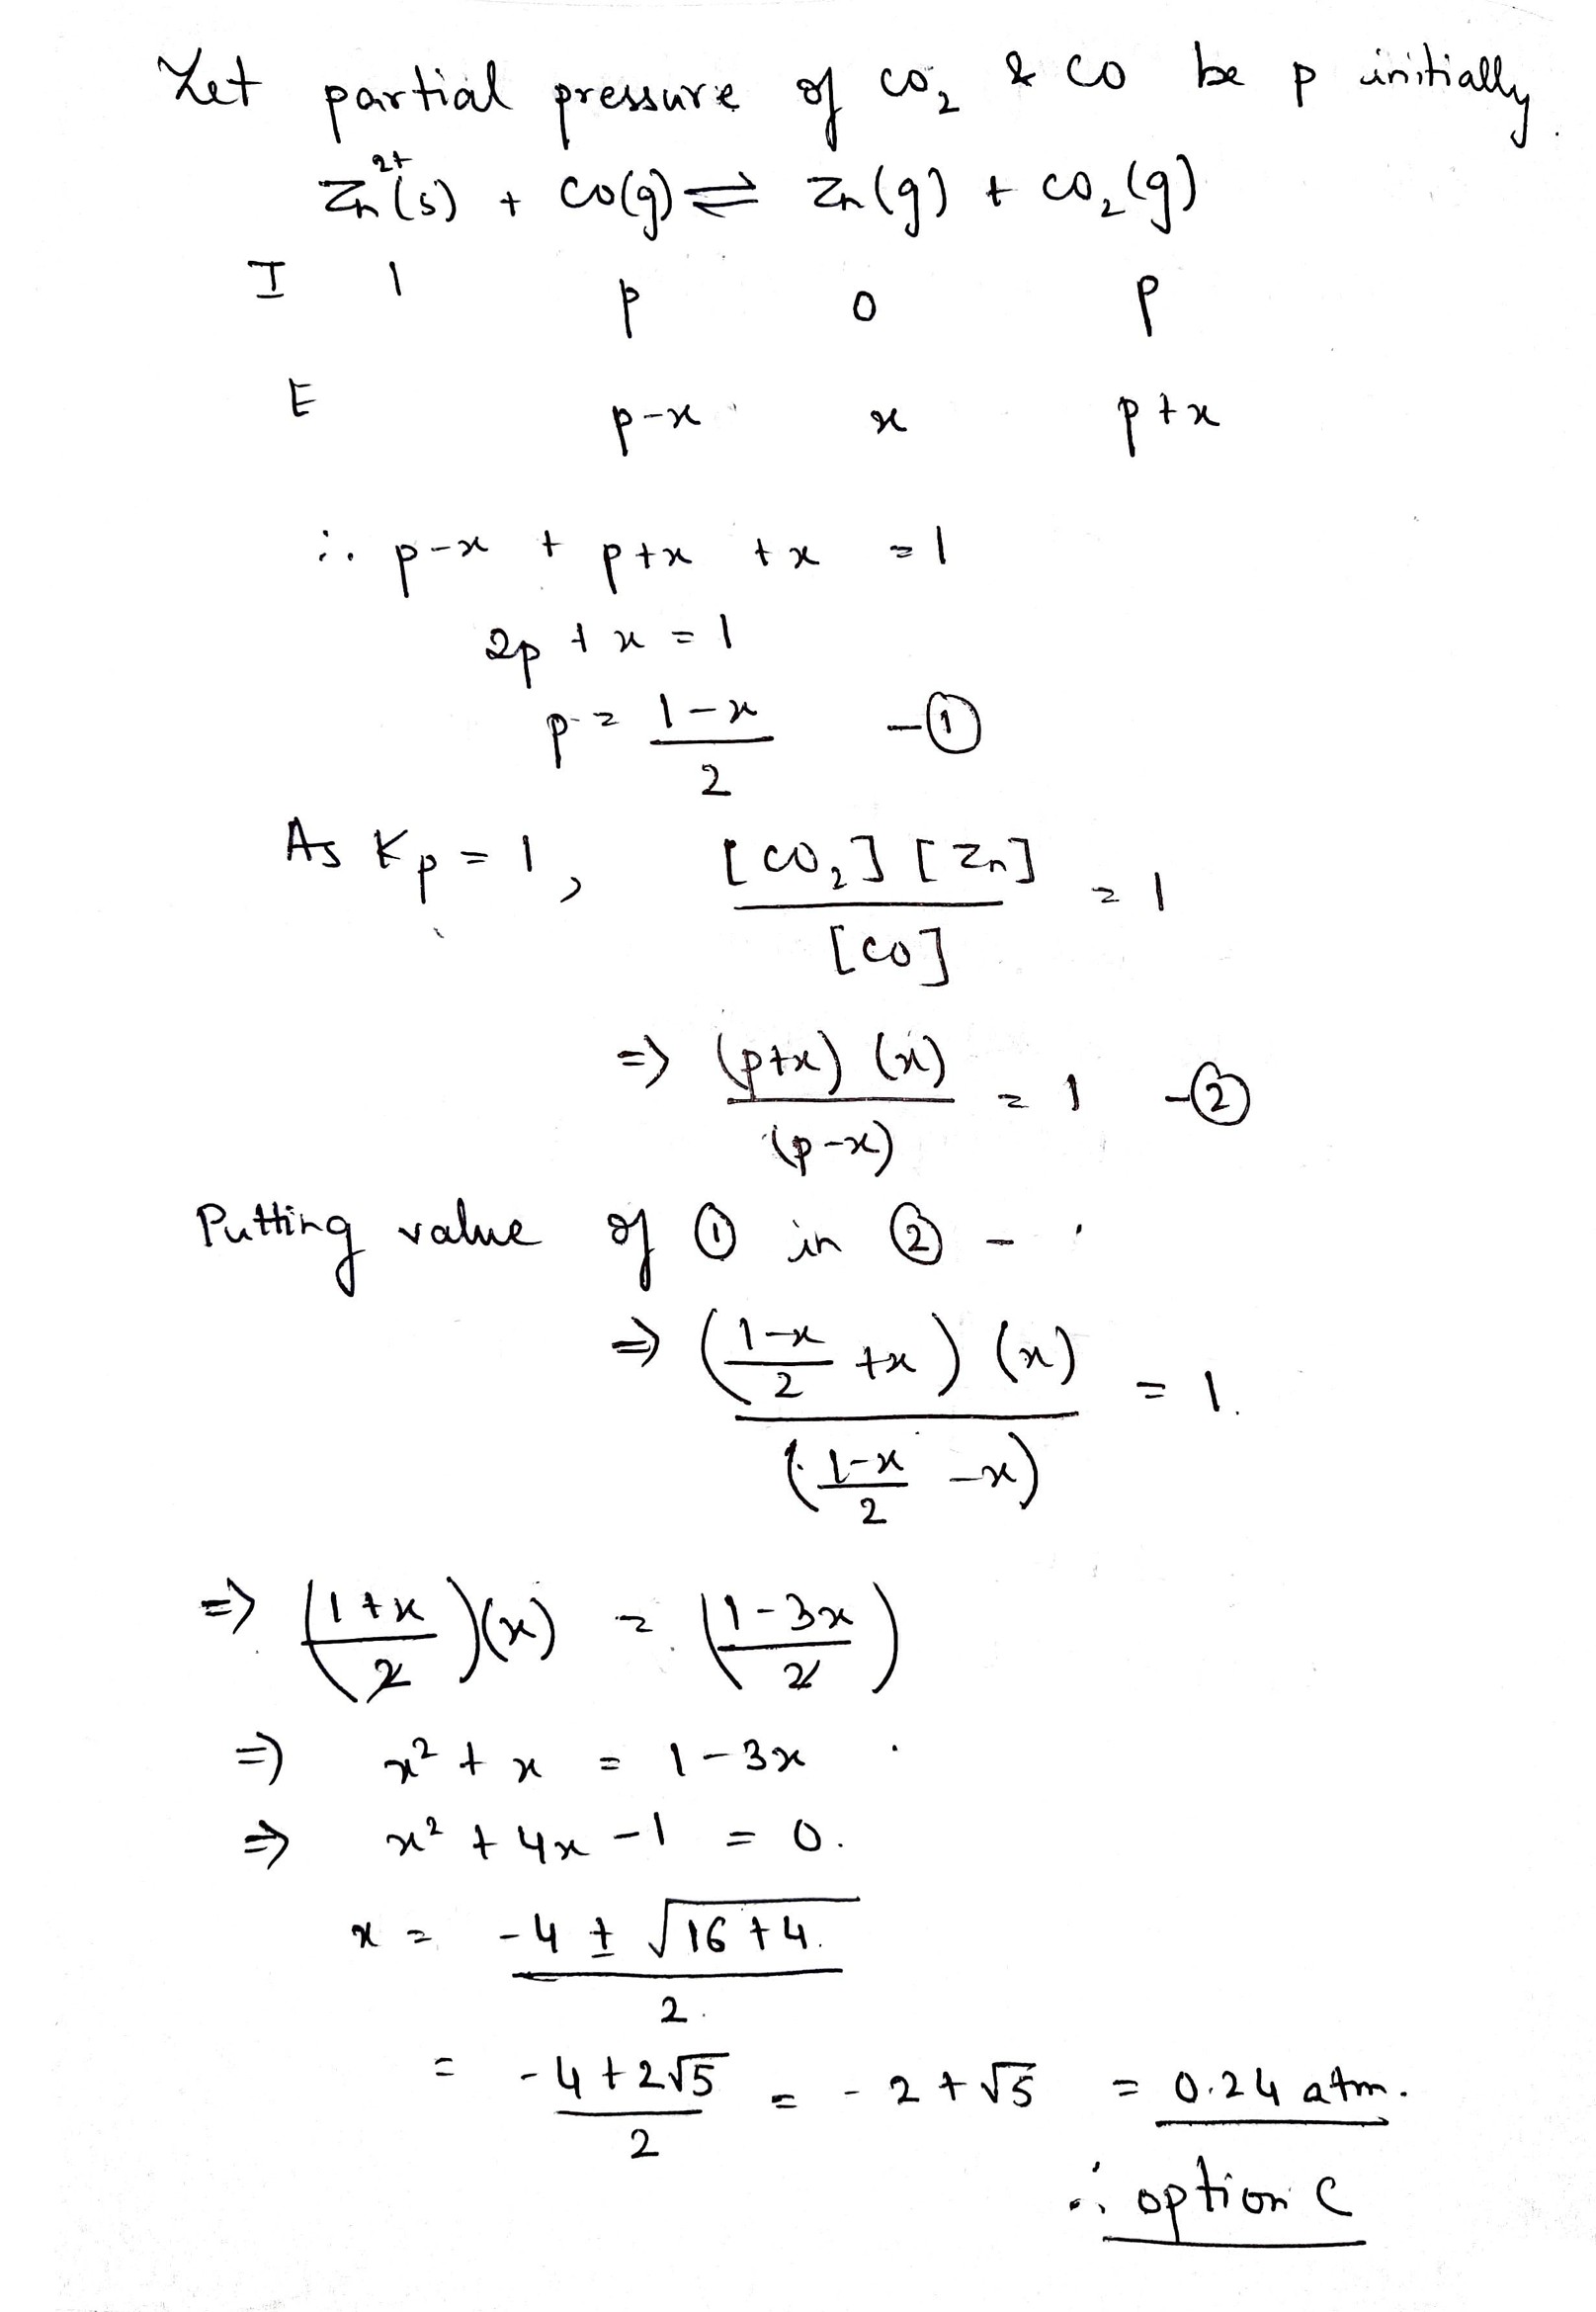 Let partial pressure of CO₂ & CO be p initially.
Zn²⁺(s) + CO(g) ⇌ Zn(g) + CO₂(g)
I 1 p 0 p
E p-x x p+x
∴ p-x + p+x + x = 1
2p + x = 1
p = (1-x)/2 - ①
As Kp = 1, [CO₂][Zn]/[CO] = 1
=> (p+x)(x)/(p-x) = 1 - ②
Putting value of ① in ② -
=> ((1-x)/2 + x)(x)/((1-x)/2 - x) = 1.
=> ((1+x)/2)(x) = ((1-3x)/2)
=> x² + x = 1-3x
=> x² + 4x - 1 = 0.
x = (-4 ± √(16+4.))/2.
= (-4+2√5)/2 = -2+√5 = 0.24 atm.
∴ option C